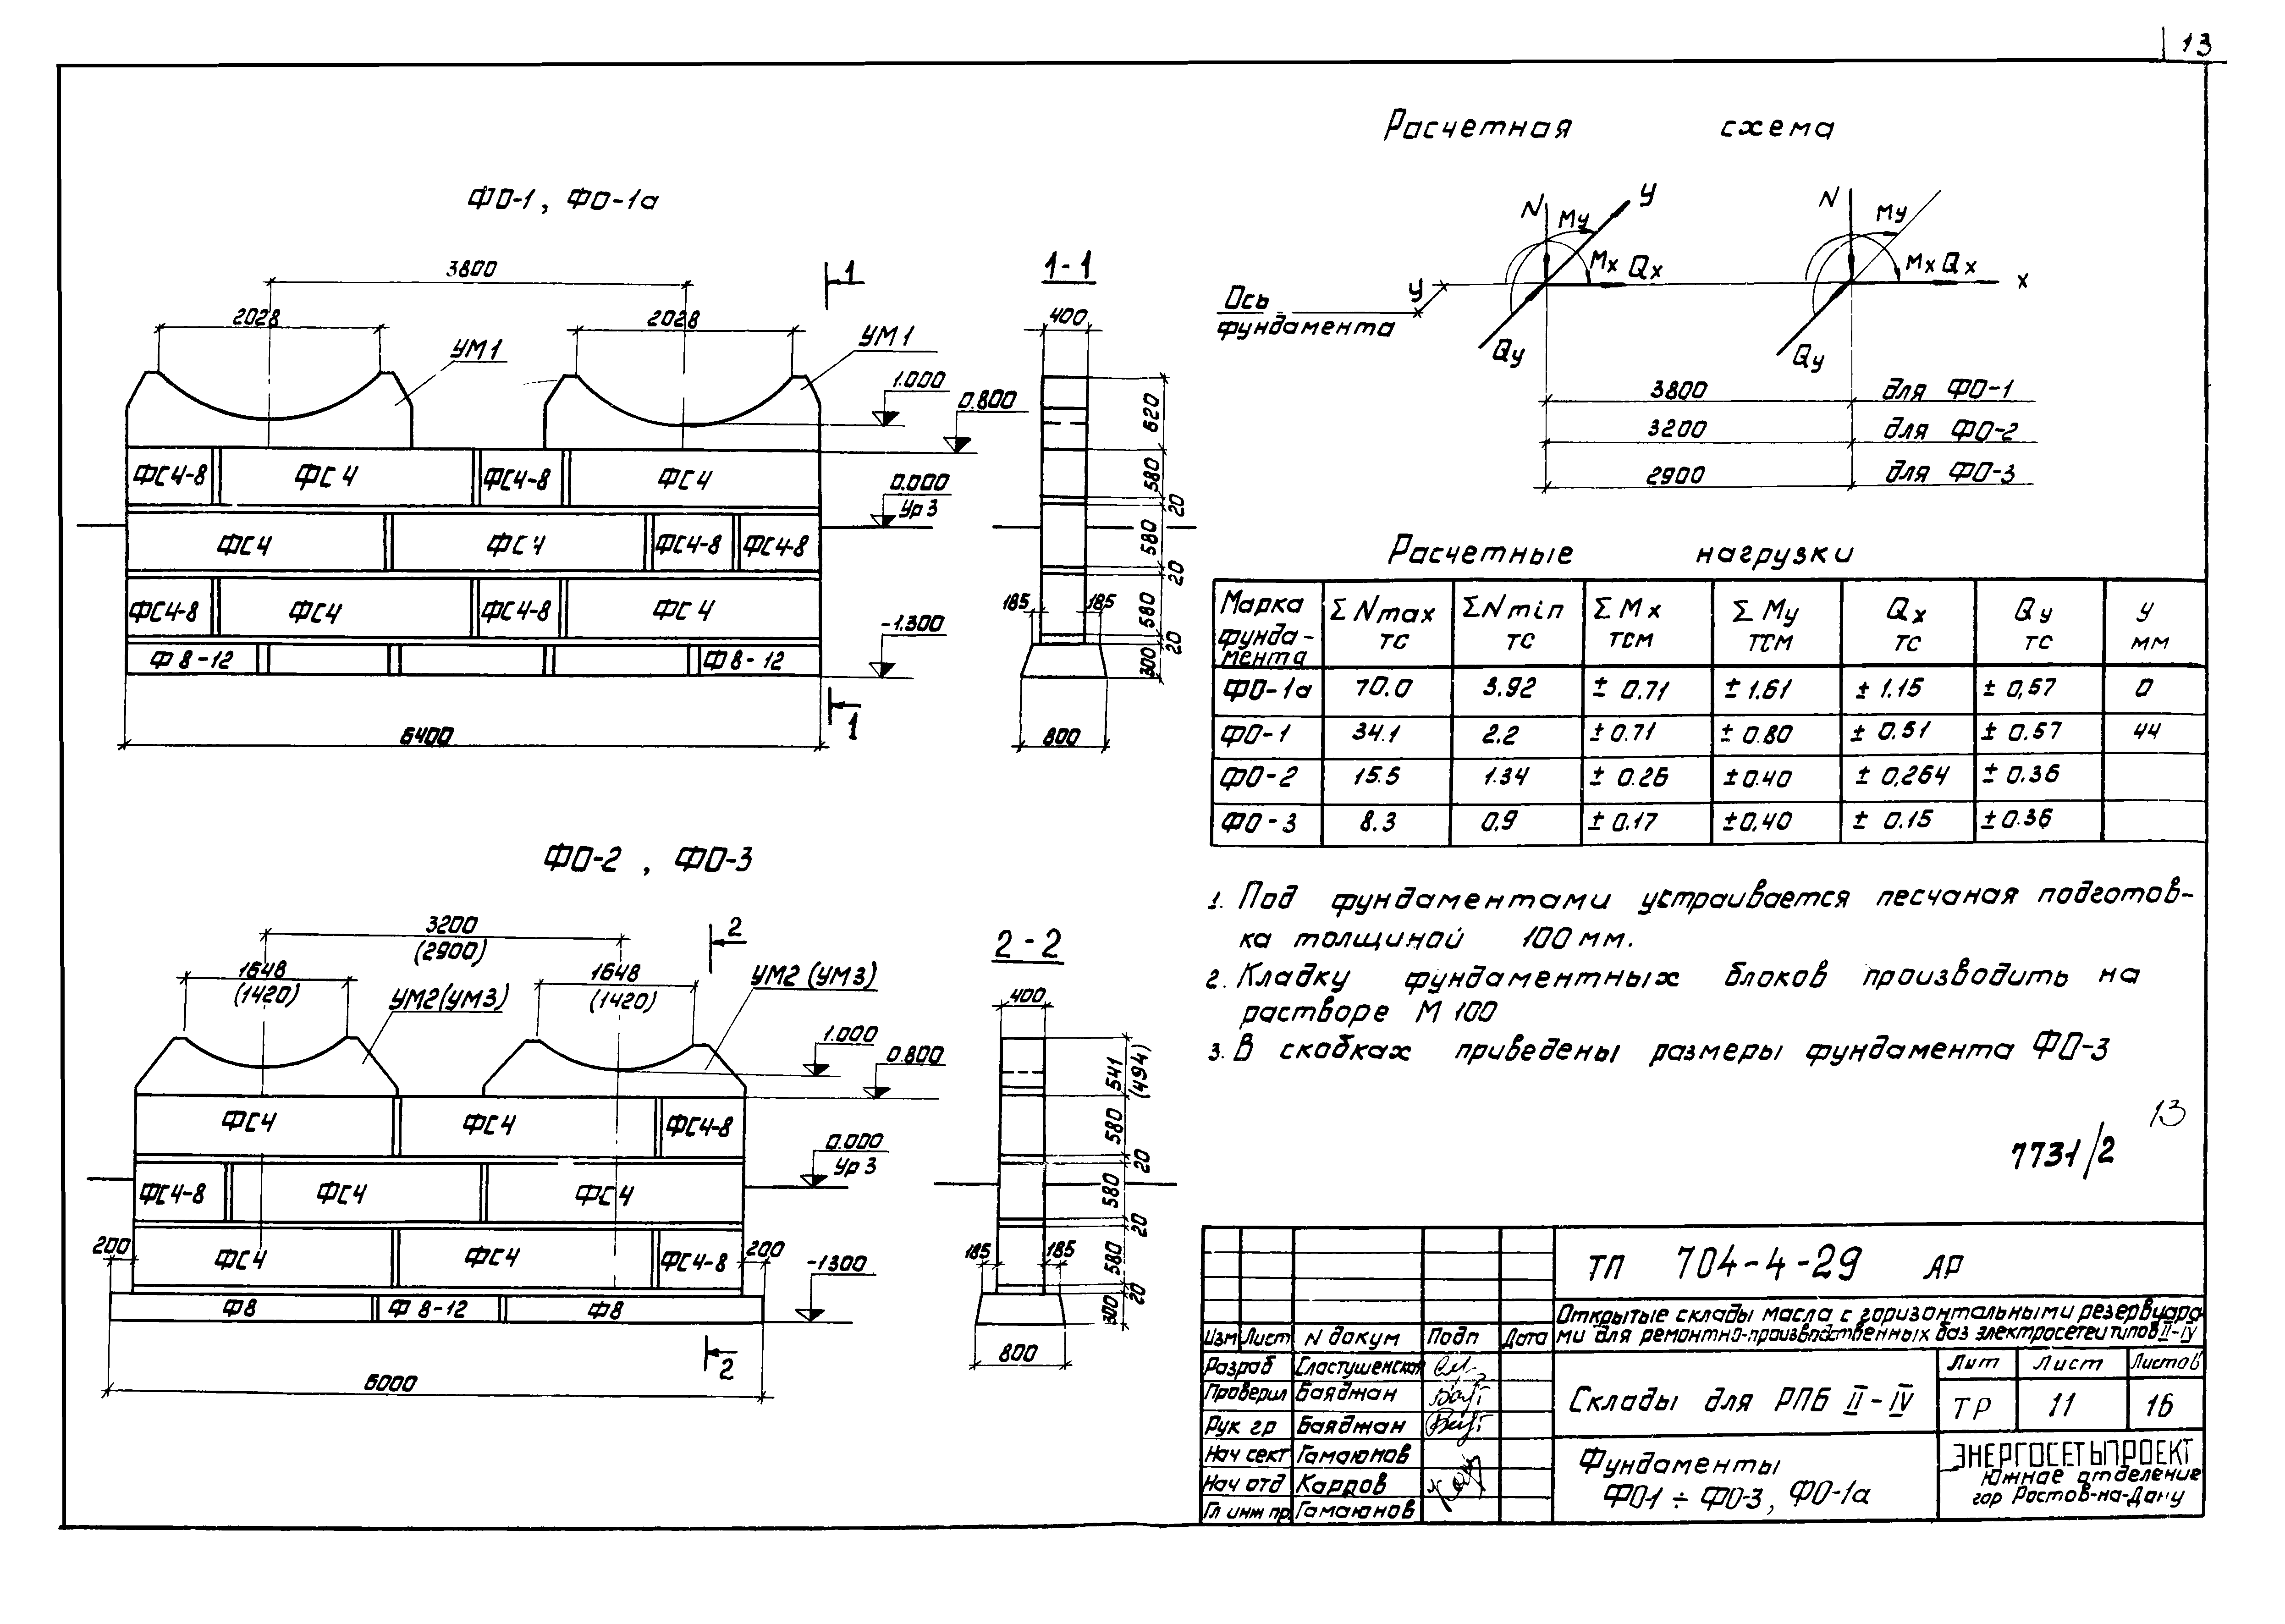 13
ФО-1, ФО-1а
3800
1
2028
2028
УМ1
УМ1
1.000
0.800
ФС4-8 ФС4 ФС4-8 ФС4
0.000
Ур З
ФС4 ФС4 ФС4-8 ФС4-8
ФС4-8 ФС4 ФС4-8 ФС4
-1.300
Ф 8-12 Ф 8-12
1
6400
1-1
400
620
580
20
580
20
580
20
300
185 185
800
ФО-2, ФО-3
3200
(2900)
2
1648
(1420)
1648
(1420)
УМ2(УМ3)
УМ2 (УМ3)
1.000
0.800
ФС4 ФС4 ФС4-8
0.000
Ур З
ФС4-8 ФС4 ФС4
200 ФС4 ФС4 ФС4-8 200
-1300
Ф8 Ф 8-12 Ф8
2
6000
2-2
400
541
(494)
580
20
580
20
580
20
300
185 185
800
Расчетная схема
N У Му Мх Qх Qу
N Му Мх Qх х Qу
У
Ось
фундамента
3800 для ФО-1
3200 для ФО-2
2900 для ФО-3
Расчетные нагрузки
Марка фунда-мента ΣNmax тс ΣNmin тс ΣMх тсм ΣMу тсм Qх тс Qу тс У мм
ФО-1а 70.0 3.92 ± 0.71 ± 1.61 ± 1.15 ± 0,57 0
ФО-1 34.1 2.2 ± 0.71 ± 0.80 ± 0.51 ± 0.57 44
ФО-2 15.5 1.34 ± 0.26 ± 0.40 ± 0,264 ± 0.36
ФО-3 8.3 0.9 ± 0.17 ± 0,40 ± 0.15 ± 0.36
1. Под фундаментами устраивается песчаная подготов-
ка толщиной 100 мм.
2. Кладку фундаментных блоков производить на
растворе М 100
3. В скобках приведены размеры фундамента ФО-3
13
7731/2
ТП 704-4-29 АР
Открытые склады масла с горизонтальными резервуара
ми для ремонтно-производственных баз электросетей типов II-IV
Изм Лист N докум Подп Дата
Разраб Сластушенская
Проверил Баяджан
Рук гр Баяджан
Нач сект Гамаюнов
Нач отд Карпов
Гл инж пр. Гамаюнов
Склады для РПБ II-IV
Лит Лист Листов
ТР 11 16
Фундаменты
ФО-1 ÷ ФО-3, ФО-1а
ЭНЕРГОСЕТЬПРОЕКТ
Южное отделение
гор Ростов-на-Дону